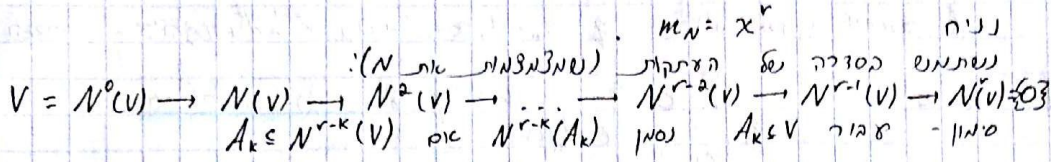 נניח m_N = x^r.
נשתמש בסדרה של העתקות (שמצמצמות את N):
V = N^0(V) → N(V) → N^2(V) → ... → N^{r-2}(V) → N^{r-1}(V) → N^r(V)={0}
סימון - עבור A_k ⊆ V נסמן N^{r-k}(A_k) אם A_k ⊆ N^{r-k}(V)